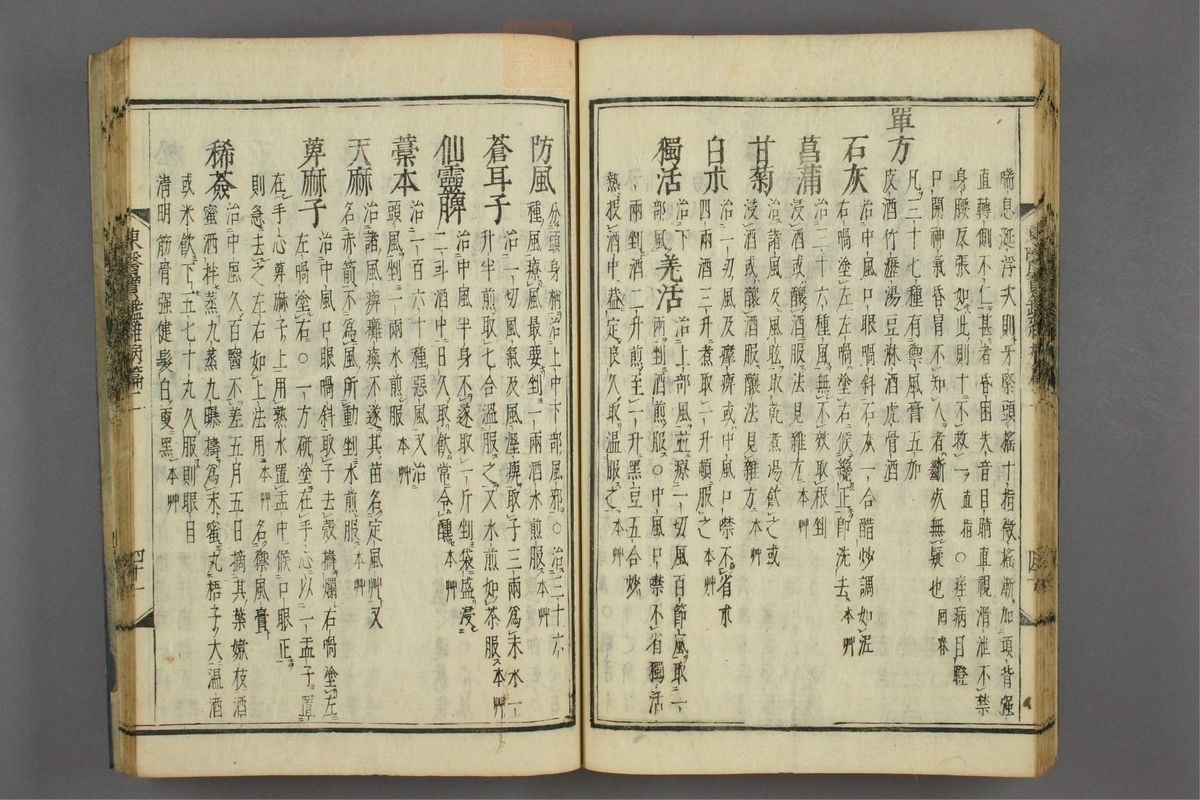 喘息涎浮大則牙緊頭搖十指微搖漸加項背强
直轉側不仁甚者昏困失音目睛直視滑泄不禁
身腰反張如此則十不救一 直指 ○痙病目瞪
口開神氣昏冒不知人者斷灰無疑也 回春
單方
凡二十七種有禦風膏五加
皮酒竹瀝湯豆淋酒虎骨酒
石灰
治中風口眼喎斜石灰一合醋炒調如泥
右喎塗左左喎塗右候纔正即洗去 本艸
菖蒲
治三十六種風無不效取根剉
浸酒或釀酒服法見雜方 本艸
甘菊
治諸風及風眩取乾煮湯飮之或
浸酒服或釀酒服釀法見雜方 本艸
白朮
治一切風及癱瘓或中風口噤不省朮
四兩酒三升煮取一升頓服之 本艸
獨活
治下部風
羌活
治上部風並療一切風百節風取二
兩剉酒煎服○中風口噤不省獨活
一兩剉酒二升煎至一升黑豆五合炒
熱投酒中盖定良久取溫服之 本艸
防風
分頭身梢治上中下部風邪○治三十六
種風療風最要剉一兩酒水煎服 本艸
蒼耳子
治一切風氣及風濕痺取子三兩爲末水一
升半煎取七合溫服之又水煎如茶服 本艸
仙靈脾
治中風半身不遂取一斤剉袋盛浸
二斗酒中日久取飮常令醺 本艸
藁本
治一百六十種惡風又治
頭風剉一兩水煎服 本艸
天麻
治諸風痺癱瘓不遂其苗名定風艸又
名赤箭不爲風所動剉水煎服 本艸
萆麻子
治中風口眼喎斜取子去殼擣爛右喎塗左
左喎塗右○一方硏塗在手心以一盂子置
在手心萆麻子上用熱水置盂中候口眼正
則急去之左右如上法用 本艸 名禦風膏
稀薟
治中風久百醫不差五月五日摘其葉嫩枝酒
蜜洒拌蒸九蒸九曝擣爲末蜜丸梧子大溫酒
或米飮下五七十丸久服則眼目
淸明筋骨强健髮白更黑 本艸
東醫寶鑑雜病篇二
四十一